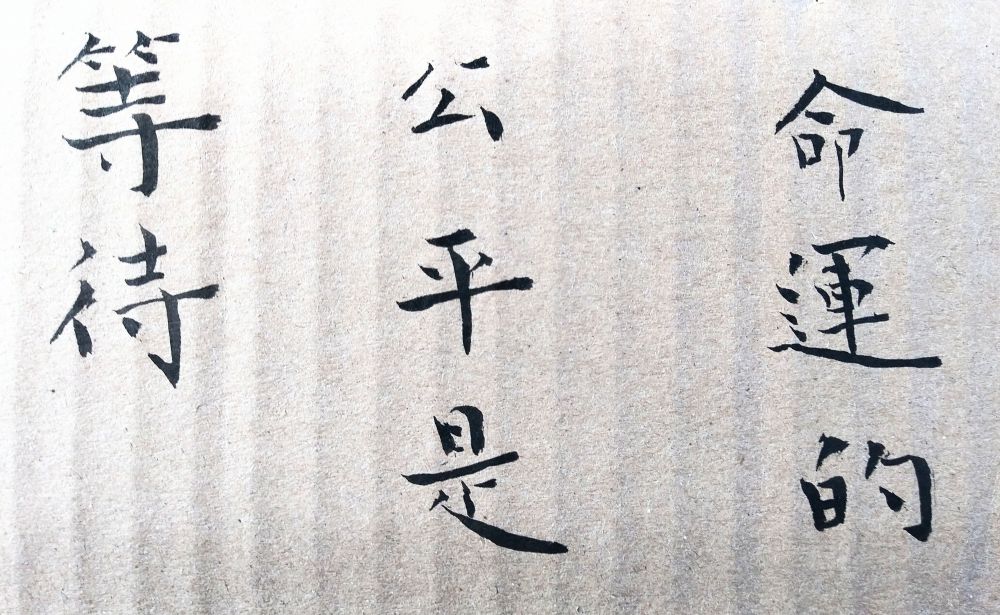 命運的
公平是
等待